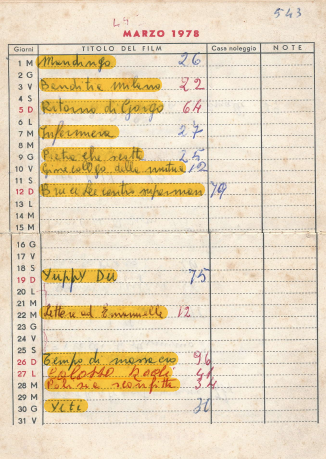 543
L4
MARZO 1978
Giorni TITOLO DEL FILM Casa noleggio NOTE
1 M Mandingo 26
2 G
3 V Banditi a milano 22
4 S
5 D Ritorno di Gorgo 64
6 L
7 M Infermiera 27
8 M
9 G Pietra che scotta 25
10 V Ginecologo della mutua 12
11 S
12 D Bruce Lee contro superman 79
13 L
14 M
15 M
16 G
17 V
18 S
19 D Yuppy Du 75
20 L
21 M
22 M Lettera ad Emanuelle 12
23 G
24 V
25 S
26 D Tempo di 96
27 L Colosso Rodi 41
28 M Polizia sconfitta 34
29 M
30 G
31 V